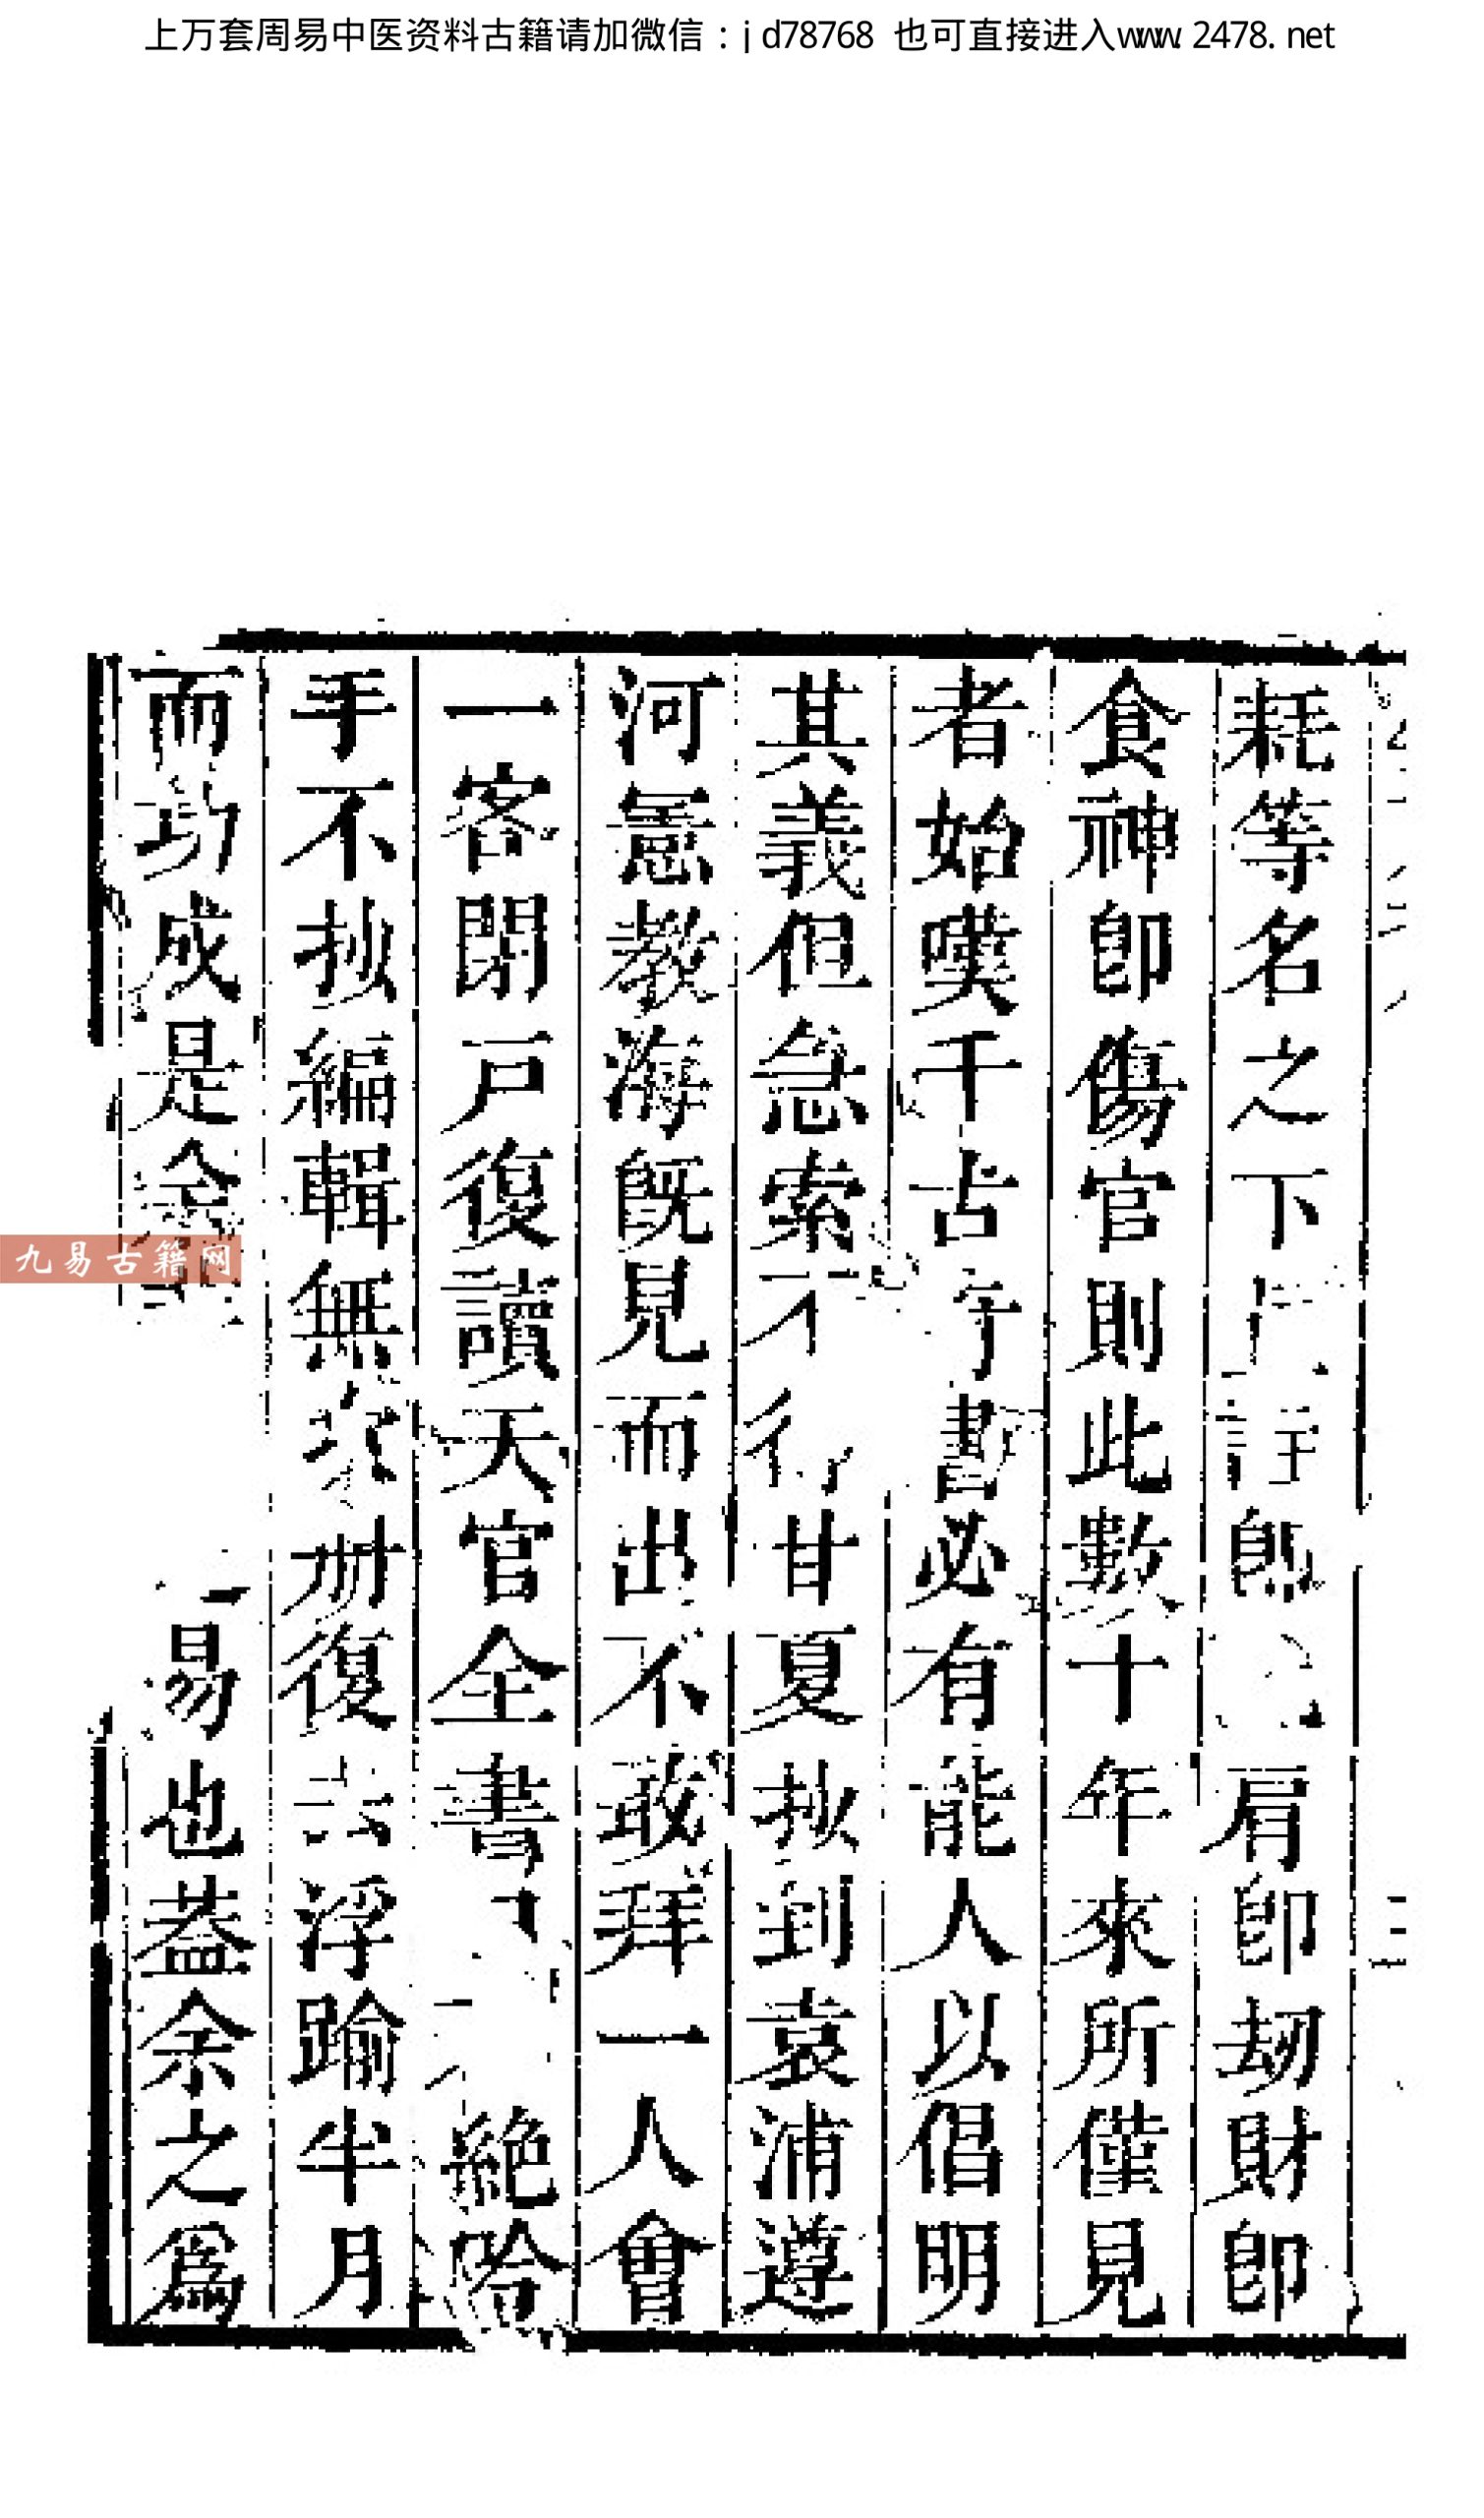 上万套周易中医资料古籍请加微信：jd78768 也可直接进入www.2478.net
耗等名之下註卽肩卽劫財卽
食神卽傷官則此數十年來所僅見
者始嘆千占字書必有能人以倡明
其義但急索不行甘夏抄到袁浦遵
河憲教海旣見而出不敢拜一人會
一客閉戸復讀天官全書絶哈
手不抄編輯無册復浮踰半月
而功成是余易也葢余之爲
九易古籍网